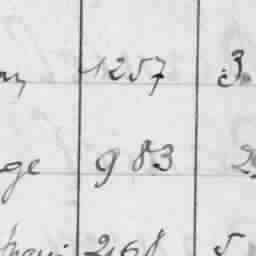 1257 3
ge 983 2
268 5